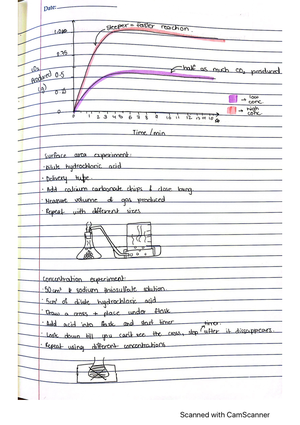 Date:
1.00
steeper = faster reaction.
0.75
CO₂
Produced
(g)
0.5
half as much CO₂ produced
0
1 2 3 4 5 6 7 8 9 10
→ low
conc.
→ high
conc.
Time / min
Surface area experiment:
· Dilute hydrochloric acid
· Delivery tube
· Add calcium carbonate chips & close bung
· Measure volume of gas produced
· Repeat with different sizes
Concentration experiment:
· 50cm³ sodium thiosulfate solution
· 5cm³ of dilute hydrochloric acid
· Draw a cross + place under flask
· Add acid into flask and start timer
timer.
· Look down till you can't see the cross, stop after it disappears.
· Repeat using different concentrations
Scanned with CamScanner